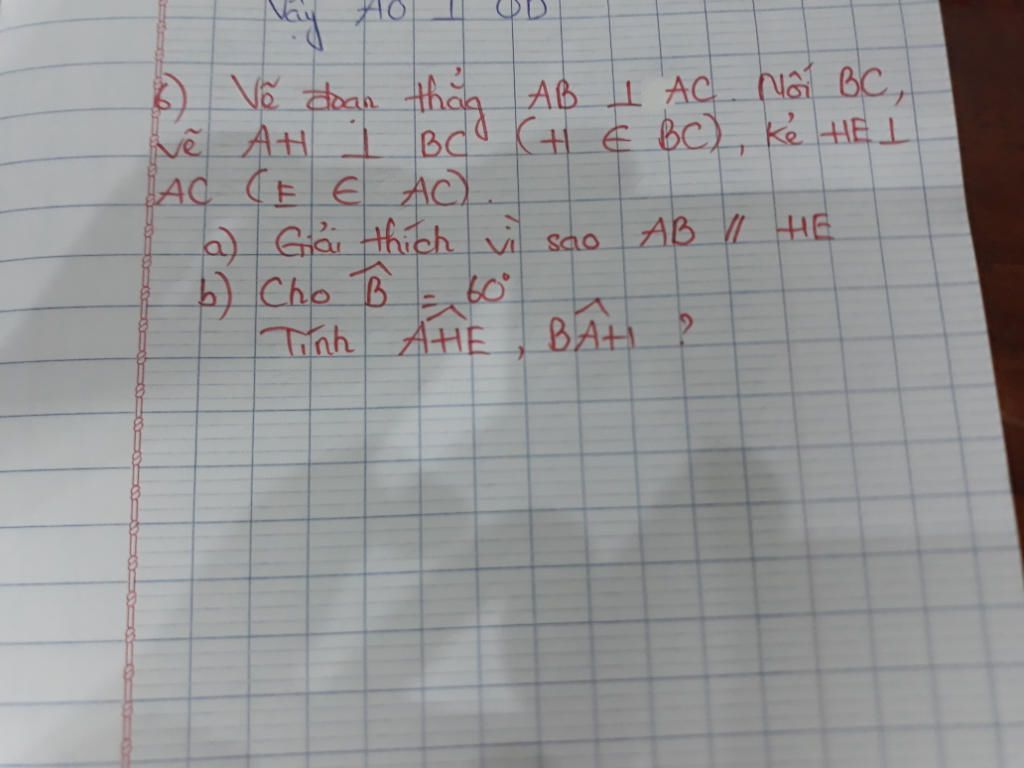 Vậy AO ⊥ OD
6) Vẽ đoạn thẳng AB ⊥ AC. Nối BC,
vẽ AH ⊥ BC (H ∈ BC), kẻ HE ⊥
AC (E ∈ AC).
a) Giải thích vì sao AB // HE
b) Cho B̂ = 60°
Tính AĤE, BÂH ?